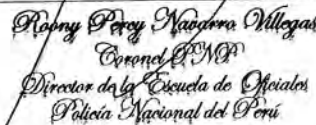 Roony Percy Navarro Villegas
Coronel PNP
Director de la Escuela de Oficiales
Policía Nacional del Perú